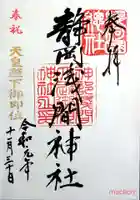 奉拝
静岡浅間神社
奉祝
天皇陛下御即位
令和元年
十一月三十日